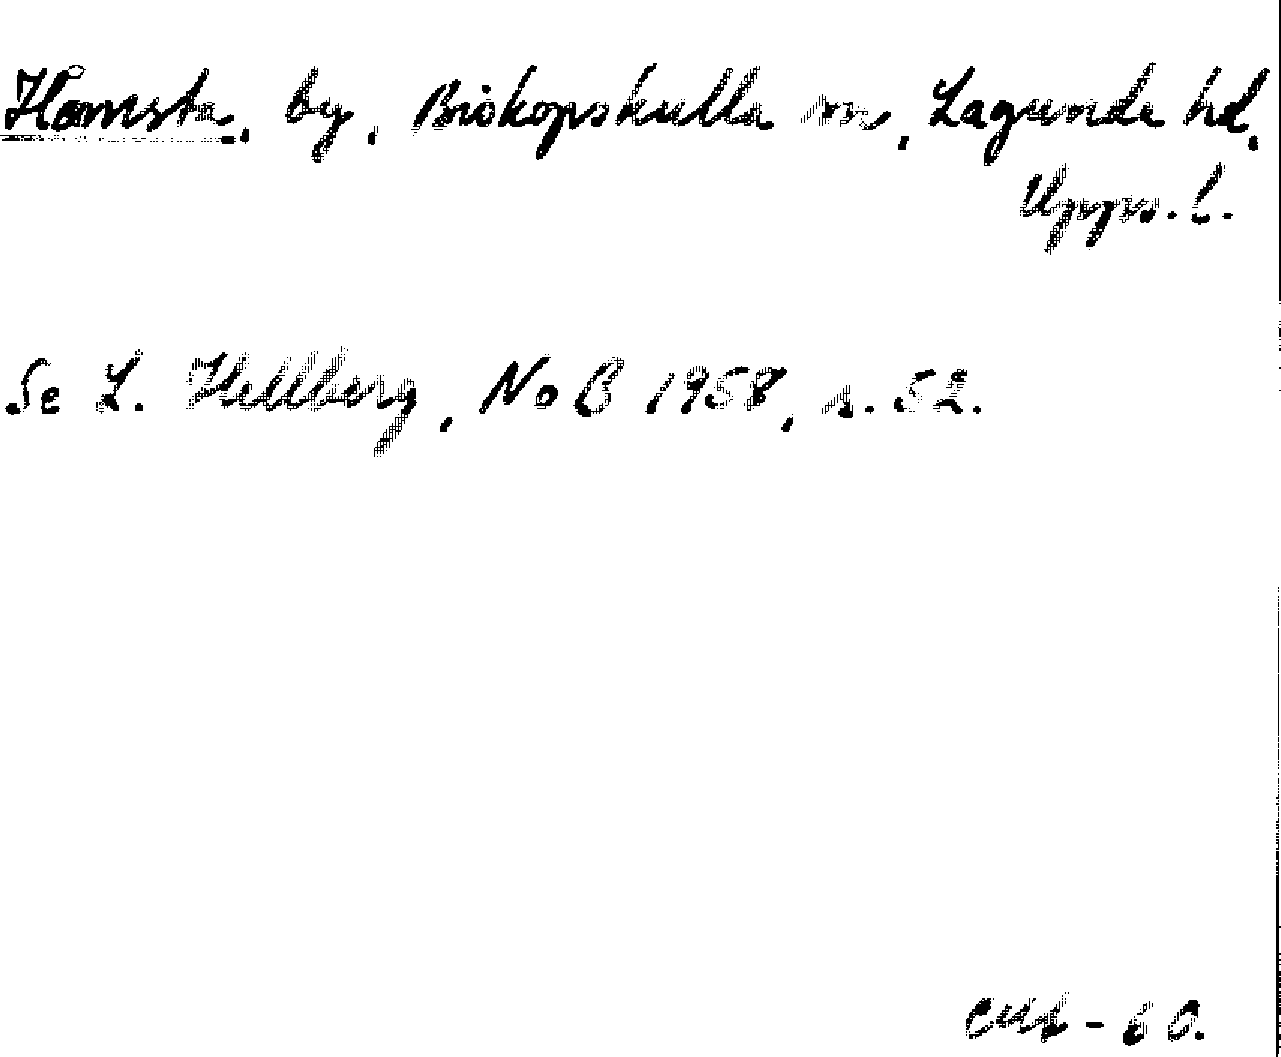 Håmsta, by, Biskopskulla sn, Lagunda hd,
Upps. l.
Se L. Hellberg, NoB 1958, s. 52.
-60.